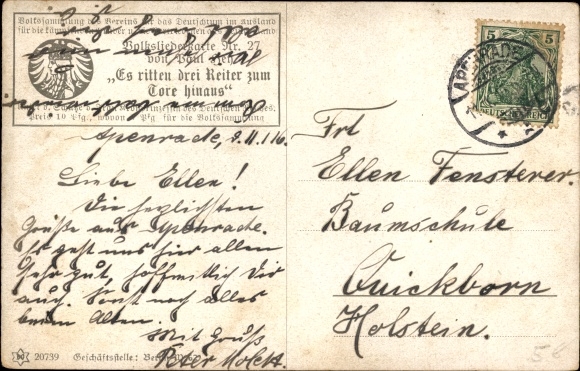 Volkssammlung des Vereins für das Deutschtum im Ausland
Volksliederkarte Nr. 27
von Paul Hey
„Es ritten drei Reiter zum
Tore hinaus“
Preis 10 Pfg., wovon Pfg für die Volkssammlung
Apenrade, 9.11.16.
Liebe Ellen!
Die herzlichsten
Grüße aus Apenrade.
Es geht uns hier allen
sehr gut, hoffentlich Dir
auch. Sonst noch alles
beim Alten.
Mit Gruß
Peter
20739 Geschäftsstelle: Berlin
5 5
DEUTSCHES REICH
APENRADE
Frl
Ellen Fensterer.
Baumschule
Quickborn
Holstein.
5€